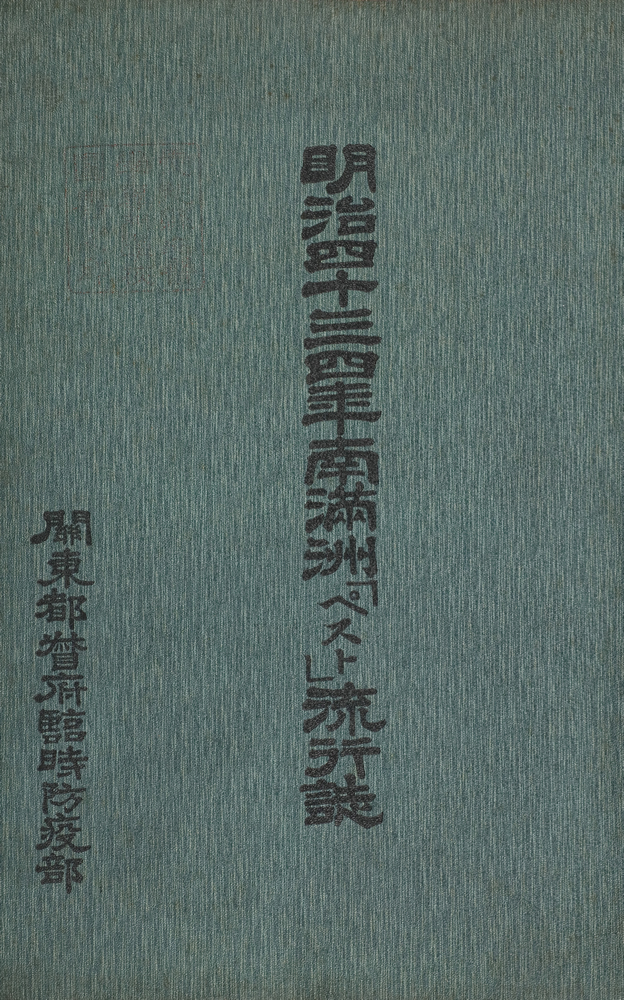 明治四十三四年南滿洲「ペスト」流行誌
關東都督府臨時防疫部